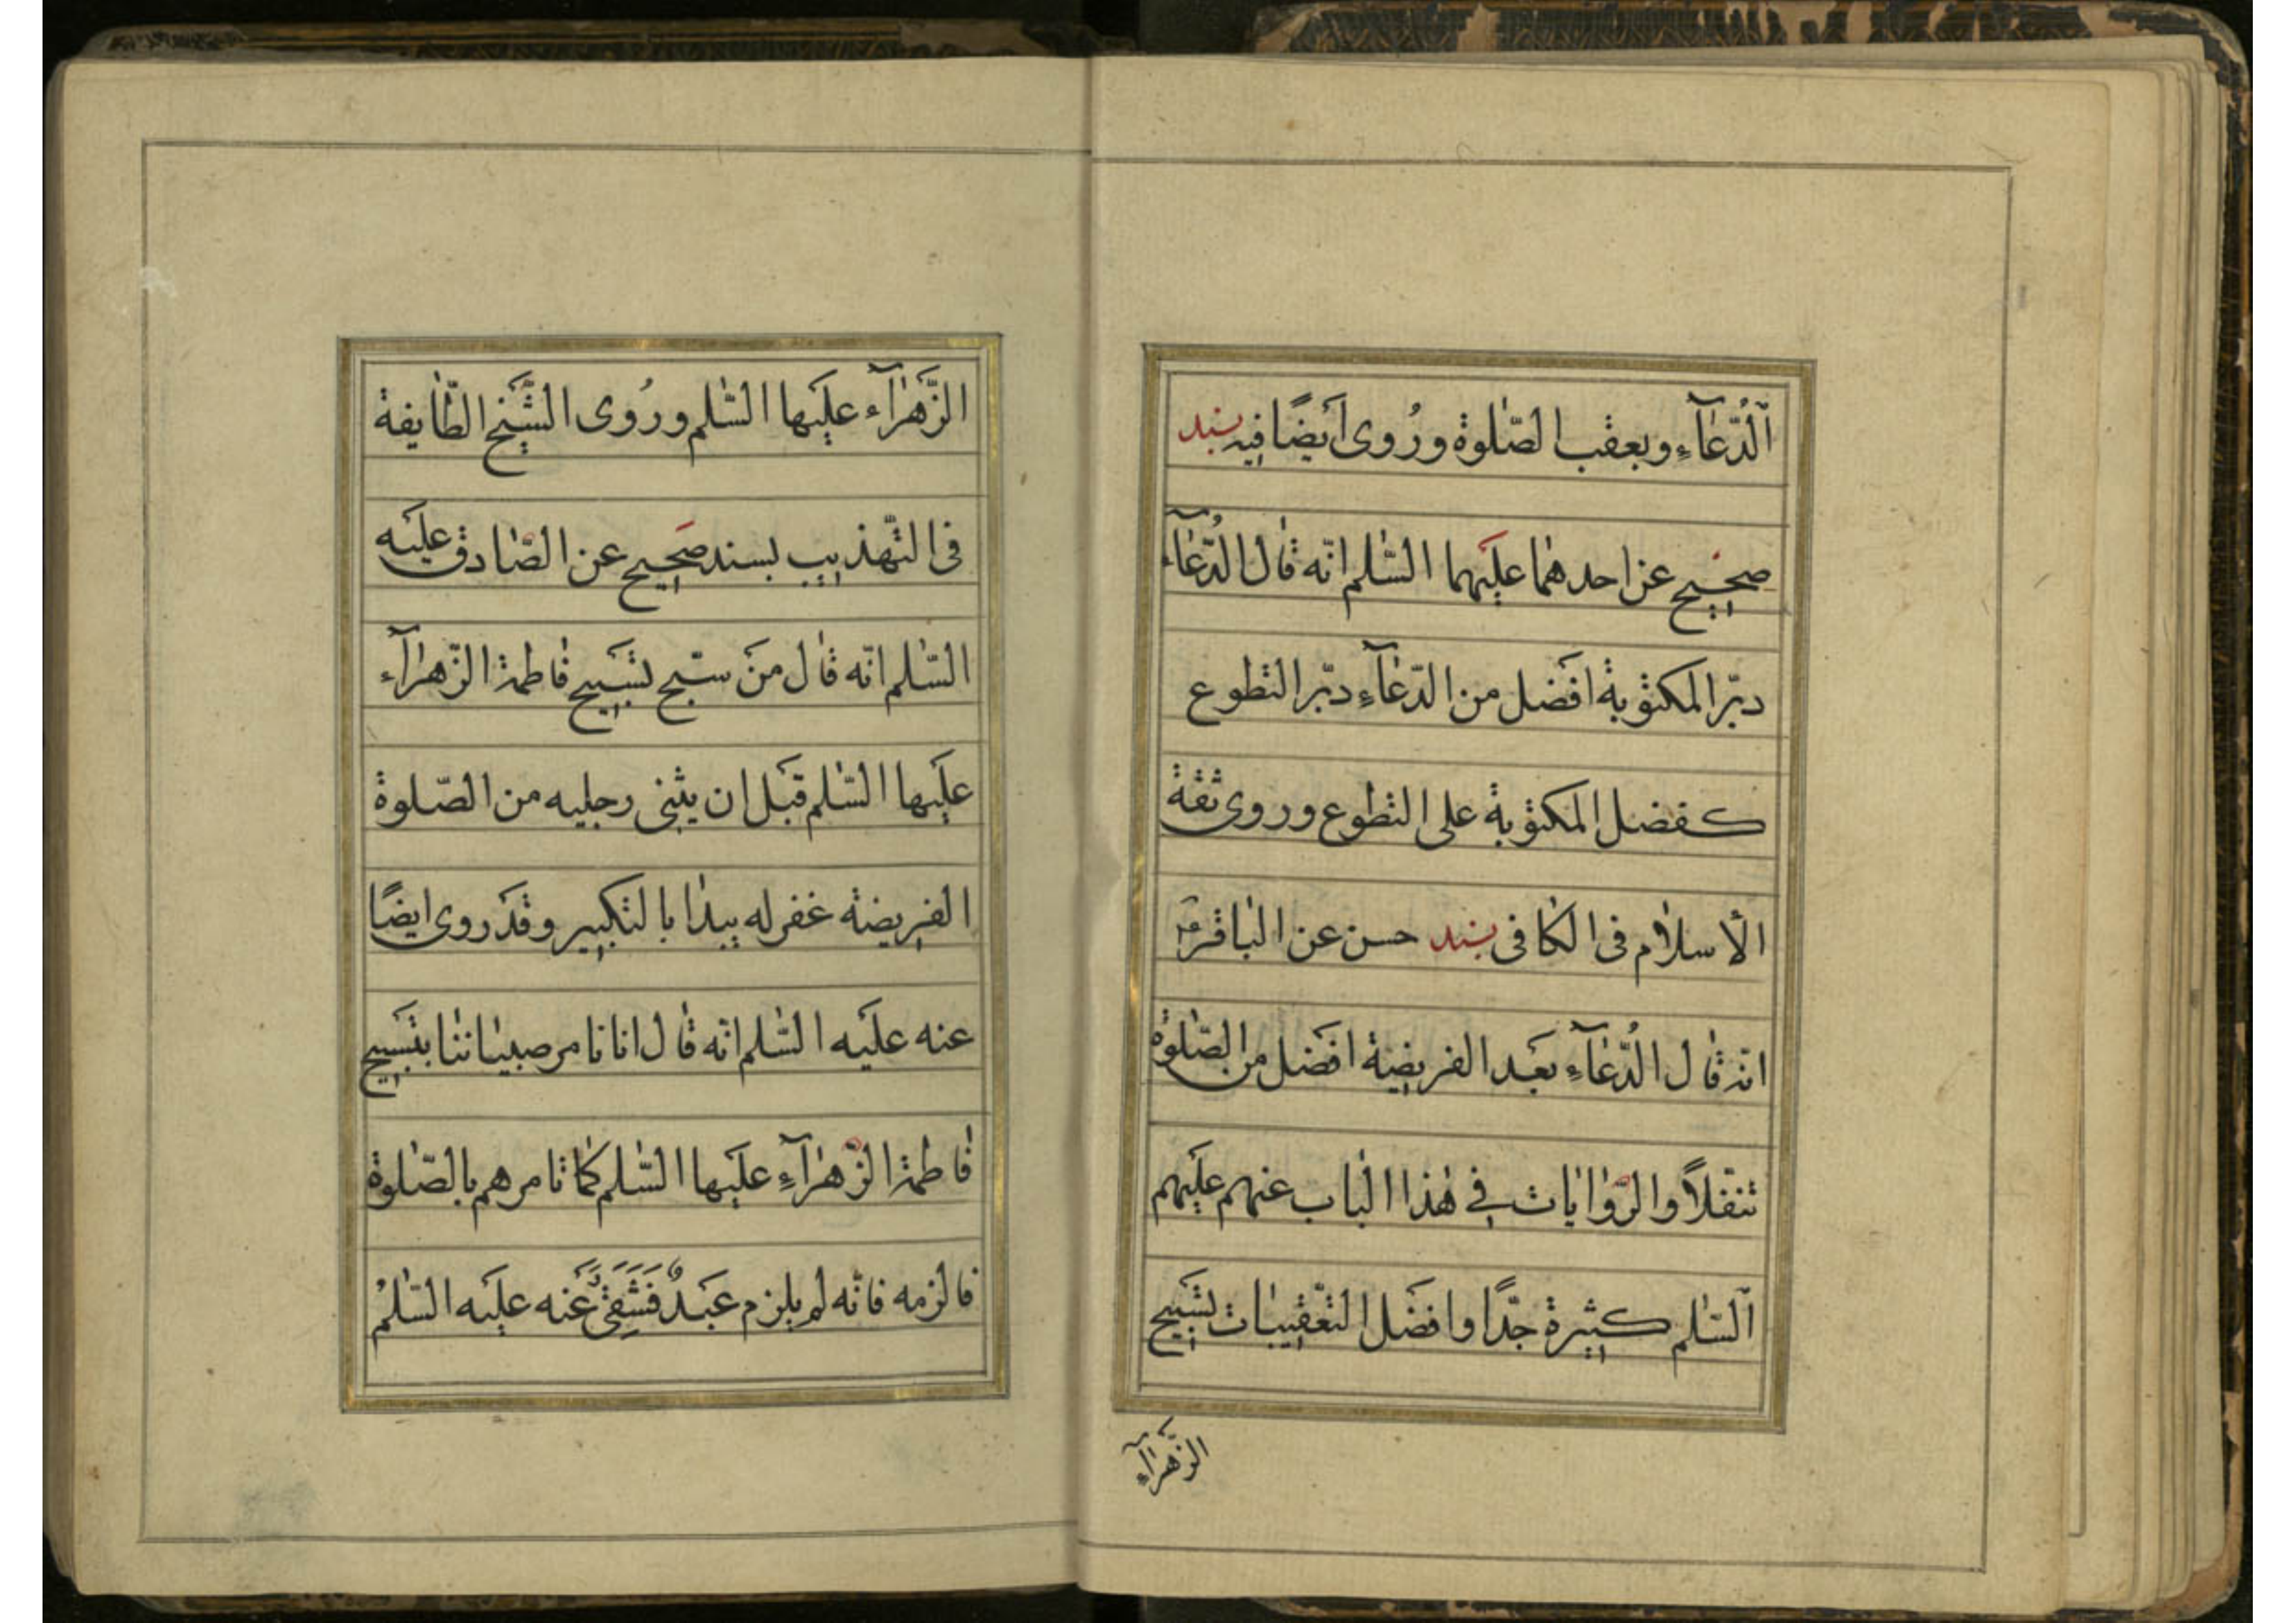 اَلدُّعٰآءِ وبعقب الصّلٰوة ورُوى اَيضًا فيه بسند
صحيح عن احدهمٰا علَيهما السّٰلم انّه قٰال الدُّعٰآء
دبر المكتوبة افضَل من الدّعٰآءِ دبر التطوع
كفضل المكتوبة على التطوع وروى ثقة
الأسلاٰم فى الكٰافى بسند حسن عن البٰاقر ؑ
انّه قٰال الدُّعٰآءِ بعَد الفريضة افضَل من الصّلٰوة
تنفّلاً والرّوٰايٰات فى هٰذا البٰاب عنهم علَيهم
اَلسّٰلم كثيرة جدًّا وافضَل التعّقيبٰات تسَبيح
الزّهَرٰآءِ
الزّهَرٰآء علَيها السّٰلم ورُوى الشّيَخ الطّٰايفة
فى التّهذيب بسند صحَيح عن الصّٰادق علَيه
السّٰلم انّه قٰال منَ سبّح تسَبيح فٰاطمة الزّهرٰآء
علَيها السّٰلم قبَل ان يثنى رجليه من الصّلوة
الفريضة غفر له يبدٰا بالتكبير وقدَ روى ايضًا
عنه علَيه السّٰلم انّه قٰال انا نامر صبيٰاننٰا بتسَبيح
فٰاطمة الزّهرٰآءِ علَيها السّٰلم كمٰا نامرهم بالصّلٰوة
فالزمه فانّه لم يلزم عبَدٌ فَشَقِىَ وَعَنه علَيه السّٰلمُ